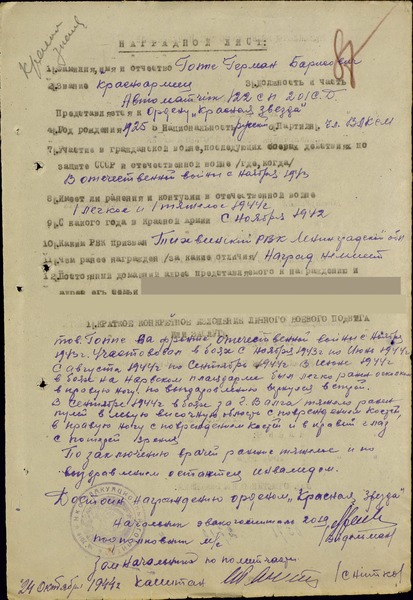 Красную
звезду
НАГРАДНОЙ ЛИСТ:
1. Фамилия, имя и отчество Гопье Герман Борисович
2. Звание красноармеец 3. Должность и часть
Автоматчик 122 СП 201 С.Д.
Представляется к Ордену „Красная звезда"
4. Год рождения 1925 5. Национальность русск. 6. Партийн. чл. ВЛКСМ
7. Участие в гражданской войне, последующих боевых действиях по
защите СССР и отечественной войне /где, когда/
В отечественной войны с ноября 1943
8. Имеет ли ранения и контузии в отечественной войне
1 легкое и 1 тяжелое 1944 г.
9. С какого года в Красной Армии с ноября 1942
10. Каким РВК призван Тихвинский РВК Ленинградской обл
11. Чем ранее награжден /за какие отличия/ Наград не имеет
12. Постоянный домашний адрес представляемого к награждению и
адрес его семьи
1. КРАТКОЕ КОНКРЕТНОЕ ИЗЛОЖЕНИЕ ЛИЧНОГО БОЕВОГО ПОДВИГА
ИЛИ ЗАСЛУГ:
тов. Гопье на фронте отечественной войны с ноября
1943 г. Участвовал в боях с ноября 1943 г по июнь 1944 г
с августа 1944 г по сентябрь 1944 г. В июне 1944 г
в боях на Нарвском плацдарме был легко ранен осколком
в правую ногу, по выздоровлению вернулся в строй.
В сентябре 1944 г в боях за г. Валга тяжело ранен
пулей в левую височную область с повреждением костей,
в правую ногу с повреждением костей и в правый глаз
с потерей зрения.
По заключению врачей ранение тяжелое и по
выздоровлении останется инвалидом.
Достоин награждению орденом „Красная звезда"
Начальник эвакогоспиталя 2019
подполковник м/с /Видоман/
Зам начальника по политчасти
24 октября 1944 г. капитан /Снитко/